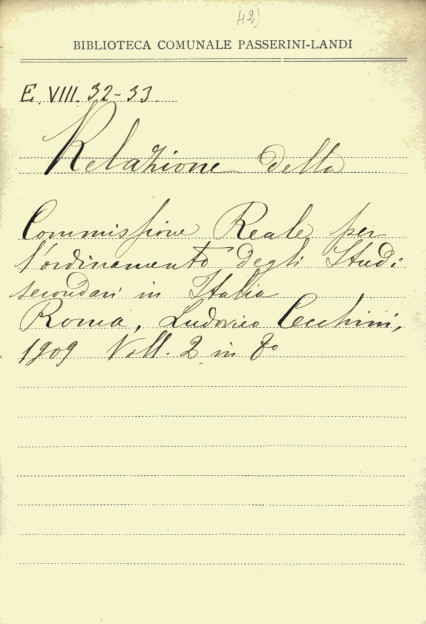 42)
BIBLIOTECA COMUNALE PASSERINI-LANDI
E. VIII. 32-33
Relazione della
Commissione Reale per
l'ordinamento degli Studi
secondari in Italia
Roma, Ludovico Cecchini,
1909 Voll. 2 in 8º